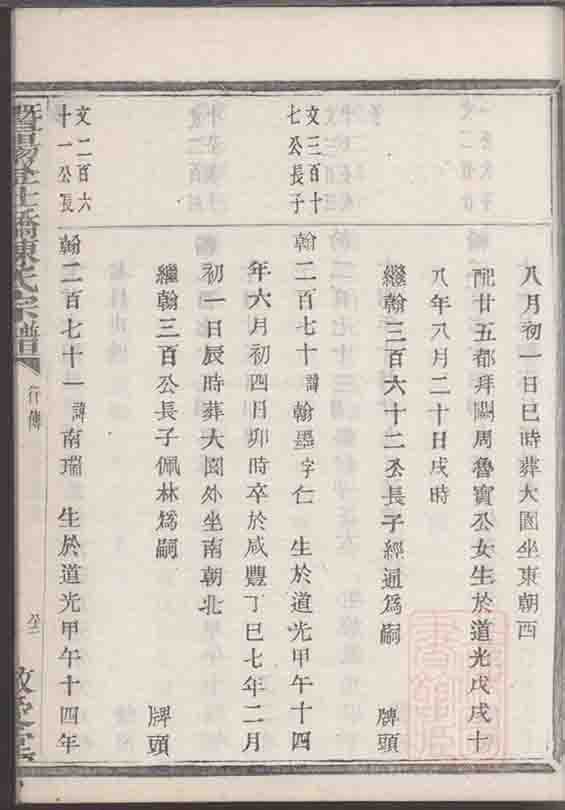 八月初一日巳時葬大園坐東朝西
配廿五都拜闕周魯寶公女生於道光戊戌十
八年八月二十日戌時
繼翰三百六十二公長子經通爲嗣 牌頭
文三百十
七公長子
翰二百七十諱翰墨字仁 生於道光甲午十四
年六月初四日卯時卒於咸豐丁巳七年二月
初一日辰時葬大園外坐南朝北
繼翰三百公長子佩林爲嗣 牌頭
文二百六
十一公長
翰二百七十一諱南瑞 生於道光甲午十四年
陳氏宗譜
行傳